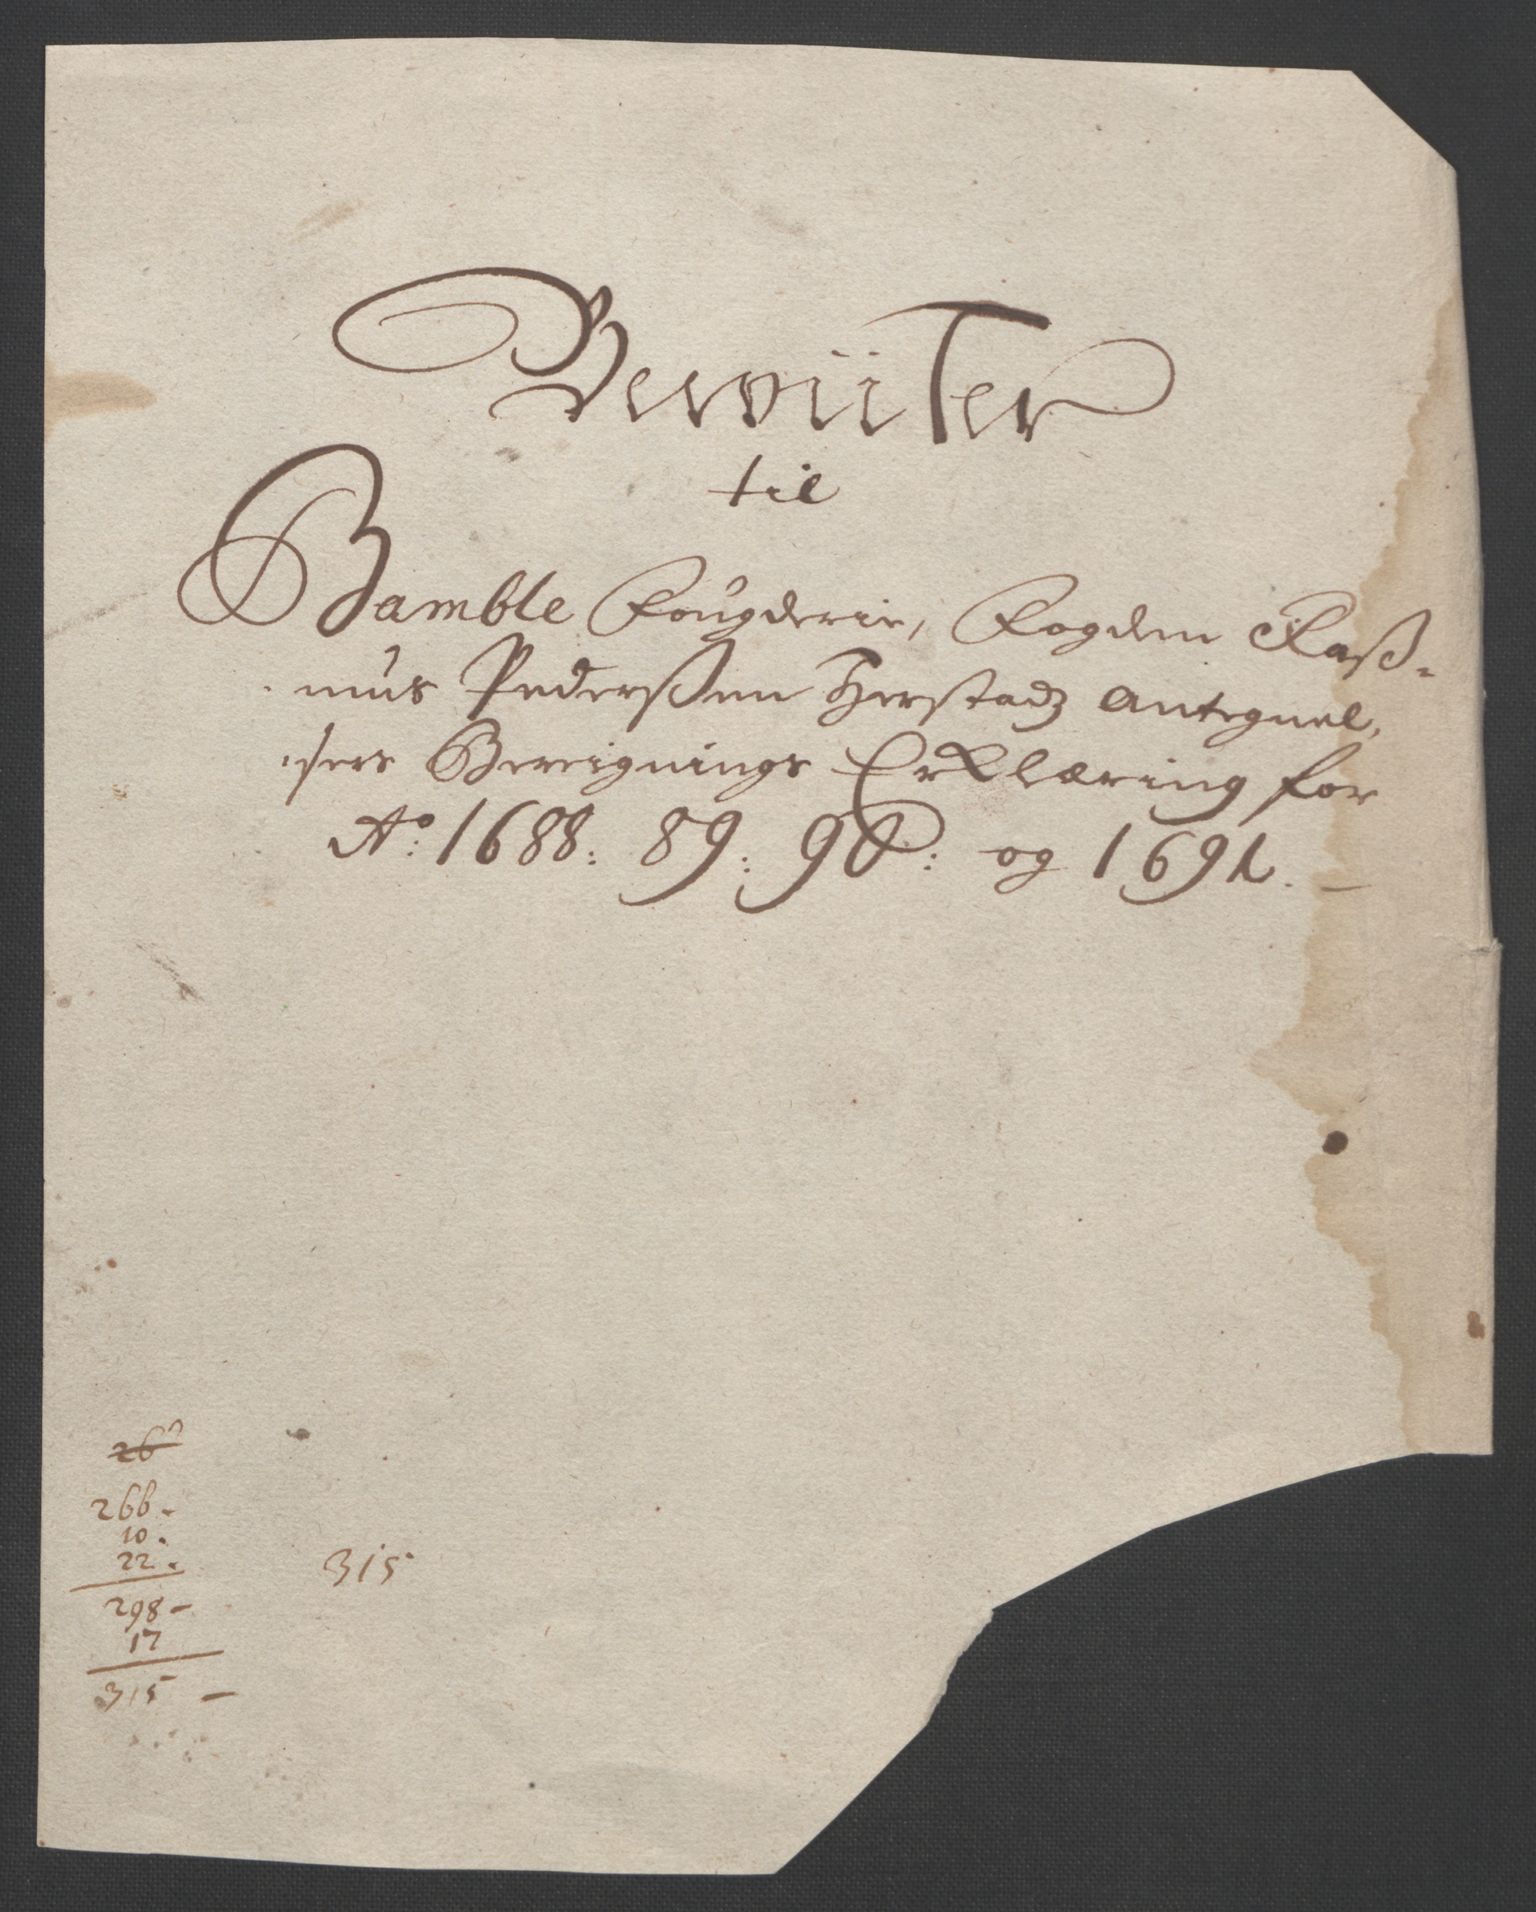 BewiiTer
til
Bamble Fougderie, Fogden Raß-
mus Pederßen Herstadz Antegnel,
sers Bereignings Erklæring for
Ao: 1688: 89: 90: og 1691. -
26
266.
10.
22.
298 -
17
315 -
315